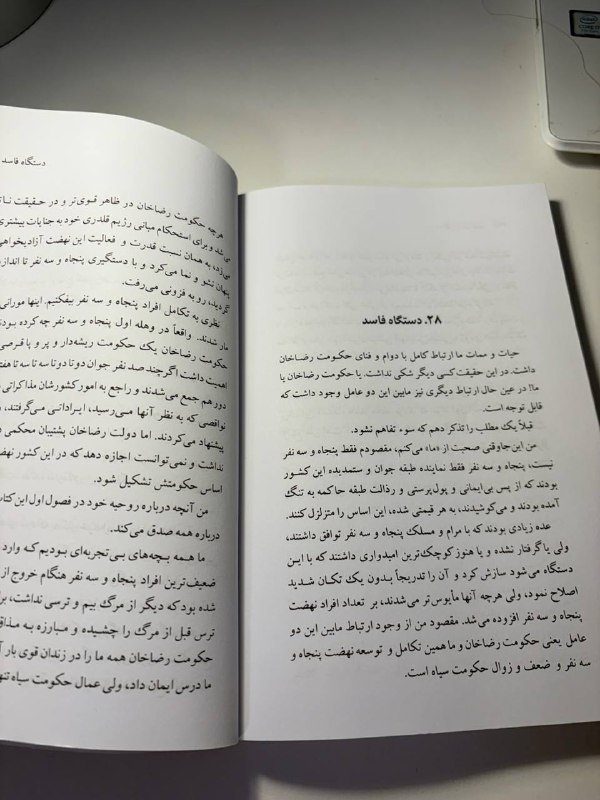 ۲۸. دستگاه فاسد
حیات و ممات ما ارتباط کامل با دوام و فنای حکومت رضاخان
داشت. در این حقیقت کسی دیگر شکی نداشت. یا حکومت رضاخان یا
ما! در عین حال ارتباط دیگری نیز مابین این دو عامل وجود داشت که
قابل توجه است.
قبلاً یک مطلب را تذکر دهم که سوء تفاهم نشود.
من این‌جا وقتی صحبت از «ما» می‌کنم، مقصودم فقط پنجاه و سه نفر
نیست، پنجاه و سه نفر فقط نماینده طبقه جوان و ستمدیده این کشور
بودند که از پس بی‌ایمانی و پول‌پرستی و رذالت طبقه حاکمه به تنگ
آمده بودند و می‌کوشیدند، به هر قیمتی شده، این اساس را متزلزل کنند.
عده زیادی بودند که با مرام و مسلک پنجاه و سه نفر توافق داشتند،
ولی یا گرفتار نشده و یا هنوز کوچک‌ترین امیدواری داشتند که با این
دستگاه می‌شود سازش کرد و آن را تدریجاً بدون یک تکان شدید
اصلاح نمود، ولی هرچه آنها مأیوس‌تر می‌شدند، بر تعداد افراد نهضت
پنجاه و سه نفر افزوده می‌شد. مقصود من از وجود ارتباط مابین این دو
عامل یعنی حکومت رضاخان و ما همین تکامل و توسعه نهضت پنجاه و
سه نفر و ضعف و زوال حکومت سیاه است.
دستگاه فاسد
هرچه حکومت رضاخان در ظاهر قوی‌تر و در حقیقت
می‌شد و برای استحکام مبانی رژیم قلدری خود به جنایات بیشتری
می‌زد، به همان نسبت قدرت و فعالیت این نهضت
پنهان نشو و نما می‌کرد و با دستگیری پنجاه و سه نفر تا
گردید، رو به فزونی می‌رفت.
نظری به تکامل افراد پنجاه و سه نفر بیفکنیم. اینها
مار شدند. واقعاً در وهله اول پنجاه و سه نفر چه کرده
حکومت رضاخان یک حکومت ریشه‌دار و پر و پا قرصی
اهمیت داشت اگر چند صد نفر جوان دو تا دو تا سه تا سه تا
دور هم جمع می‌شدند و راجع به امور کشورشان مذاکراتی
نواقصی که به نظر آنها می‌رسید، ایراداتی می‌گرفتند،
پیشنهاد می‌کردند. اما دولت رضاخان پشتیبان محکمی
نداشت و نمی‌توانست اجازه دهد که در این کشور
اساس حکومتش تشکیل شود.
من آنچه درباره روحیه خود در فصول اول این
درباره همه صدق می‌کند.
ما همه بچه‌های بی‌تجربه‌ای بودیم که وارد
ضعیف‌ترین افراد پنجاه و سه نفر هنگام خروج از
شده بود که دیگر از مرگ بیم و ترسی نداشت،
ترس قبل از مرگ را چشیده و مبارزه به
حکومت رضاخان همه ما را در زندان قوی بار
ما درس ایمان داد، ولی عمال حکومت سیاه